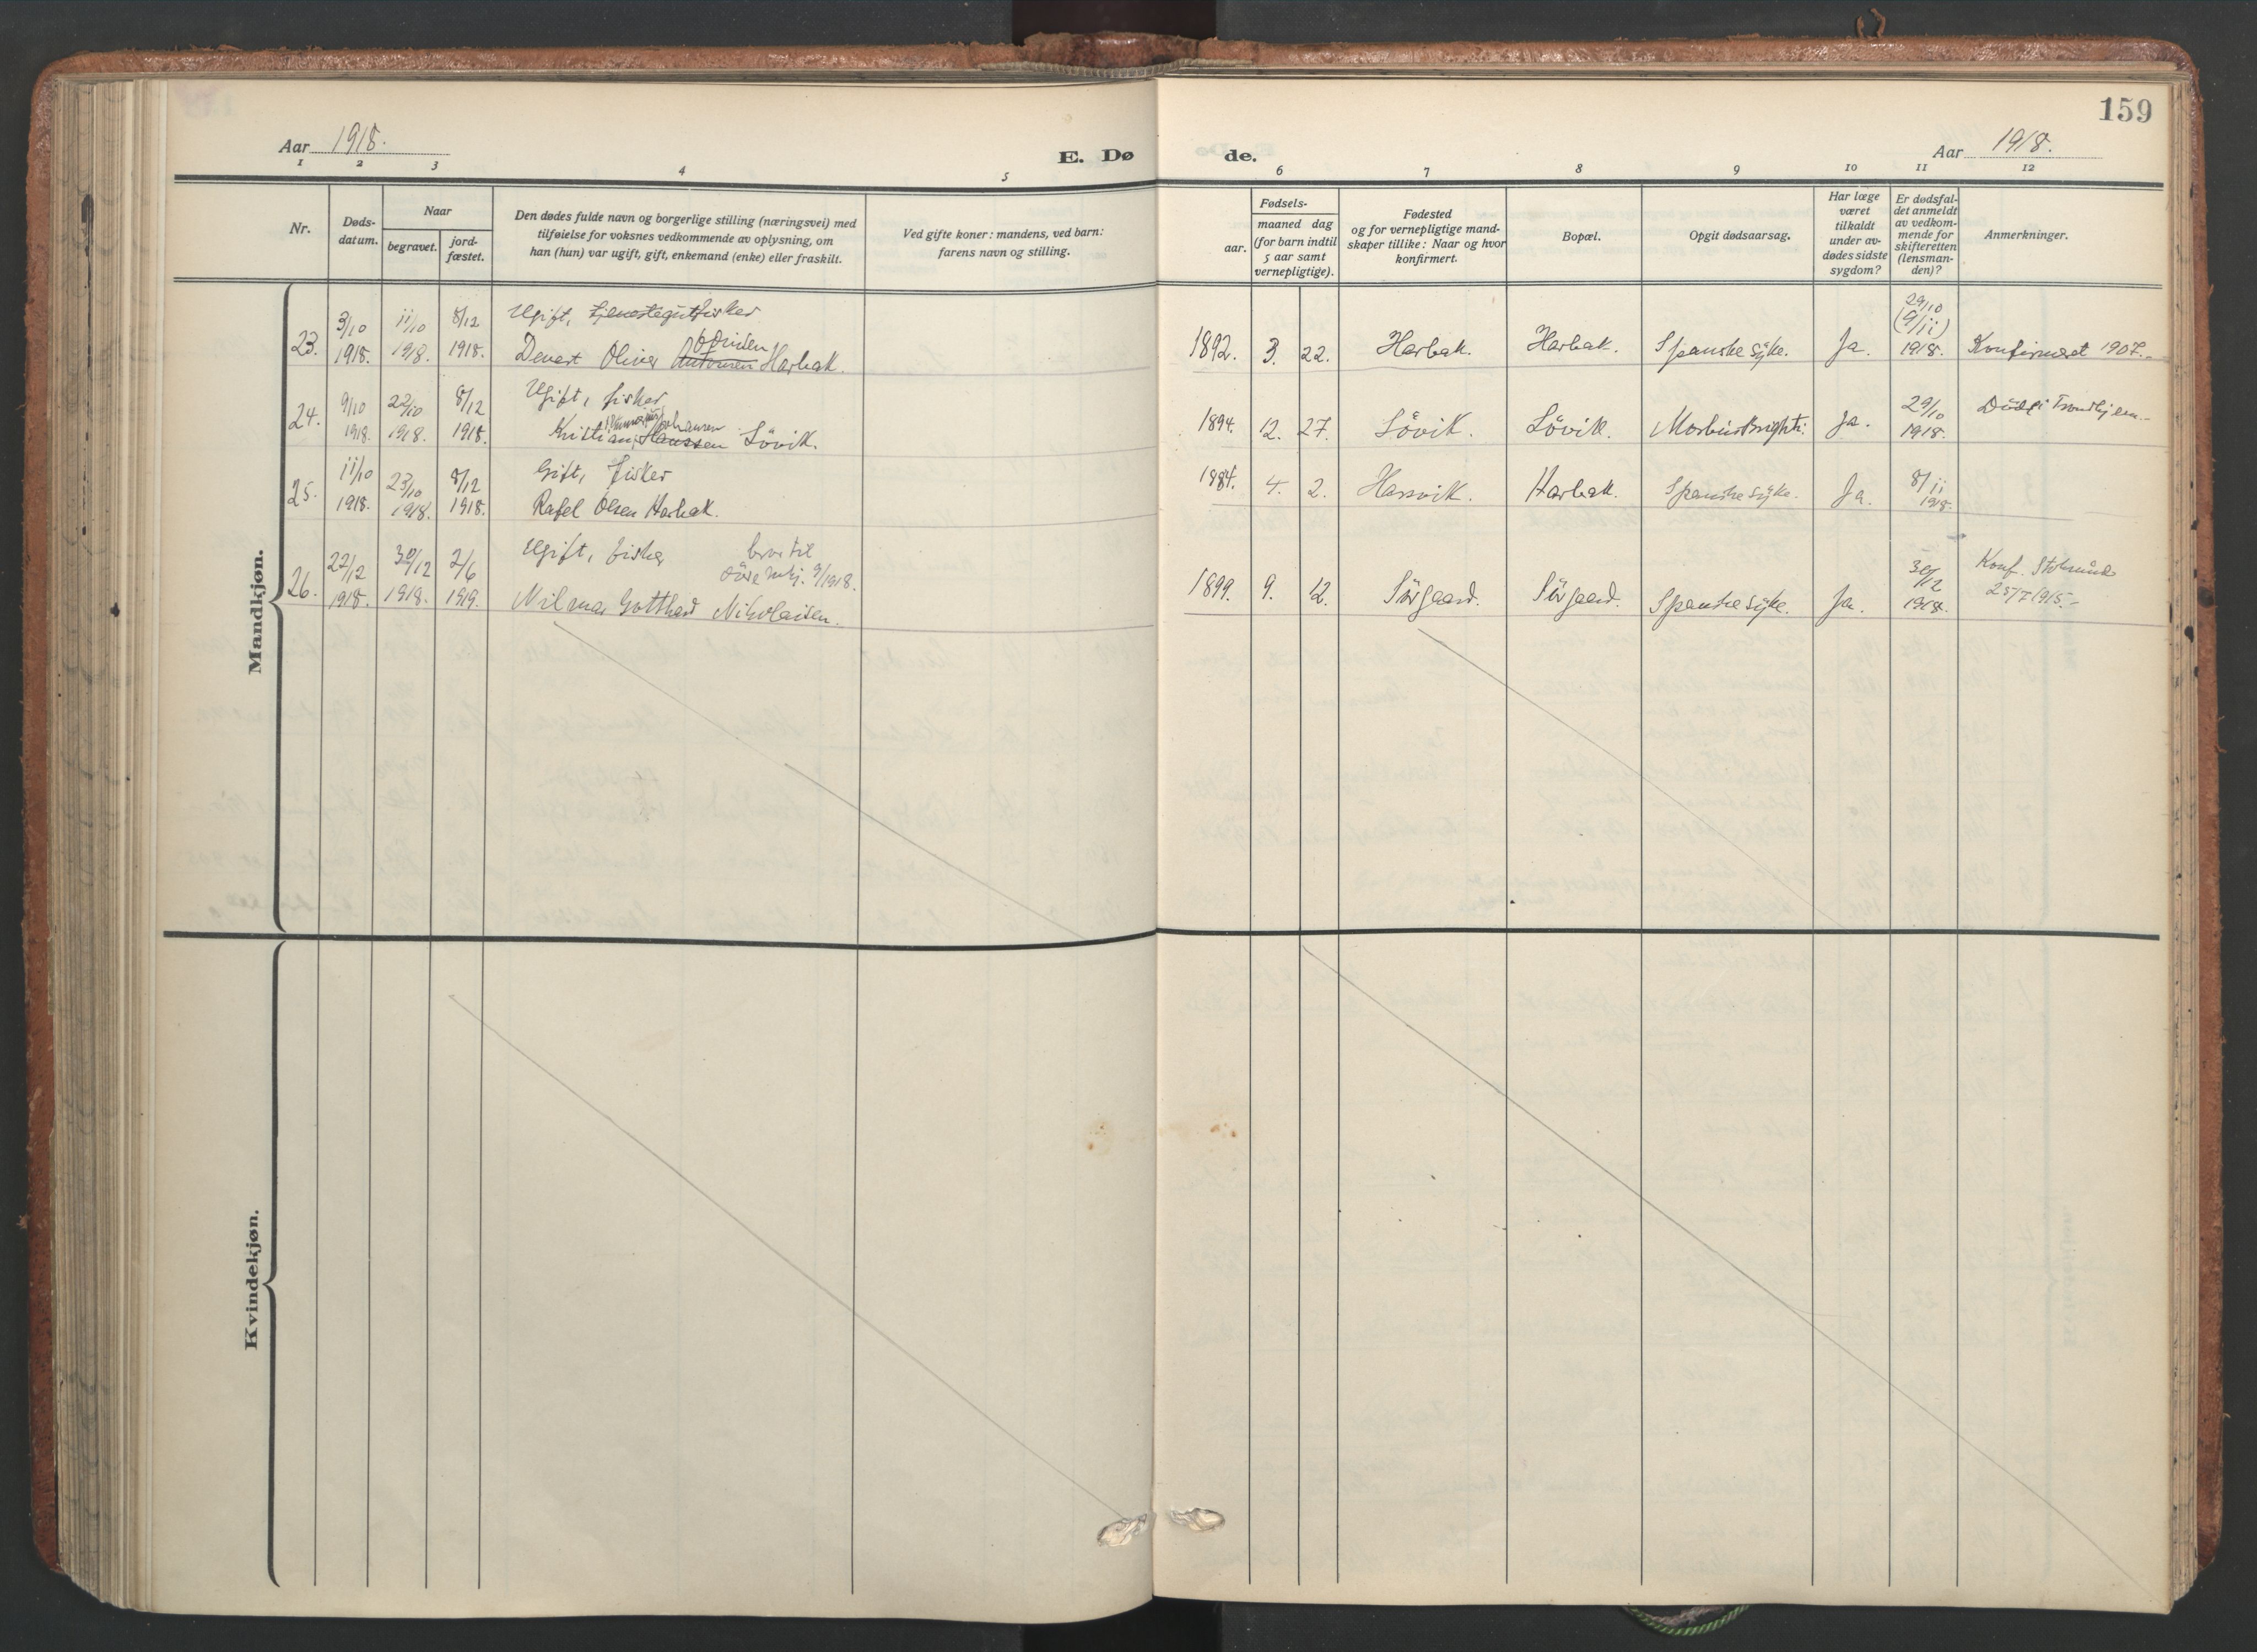 159
Aar 1918.
E. Dø
de.
Aar 1918.
1 2 3 4 5 6 7 8 9 10 11 12
Nr.
Døds-
datum.
Naar
begravet.
jord-
fæstet.
Den dødes fulde navn og borgerlige stilling (næringsvei) med
tilføielse for voksnes vedkommende av oplysning, om
han (hun) var ugift, gift, enkemand (enke) eller fraskilt.
Ved gifte koner: mandens, ved barn:
farens navn og stilling.
Fødsels-
aar.
maaned dag
(for barn indtil
5 aar samt
vernepligtige).
Fødested
og for vernepligtige mand-
skaper tillike: Naar og hvor
konfirmert.
Bopæl.
Opgit dødsaarsag.
Har læge
været
tilkaldt
under av-
dødes sidste
sygdom?
Er dødsfal-
det anmeldt
av vedkom-
mende for
skifteretten
(lensman-
den)?
Anmerkninger.
Mandkjøn.
23.
3/10
1918.
11/10
1918.
8/12
1918.
Ugift, tjenestegut fisker
Odinsen
Devert Oliver Antonsen Harbak.
1892. 3. 22. Harbak. Harbak. Spanske syke. Ja.
29/10
(9/11)
1918.
Konfirmeret 1907.
24.
9/10
1918.
22/10
1918.
8/12
1918.
Ugift, fisker
Johansen
Kristian Hanssen Lövik.
1894. 12. 27. Lövik. Lövik. Morbus Brighti. Ja.
29/10
1918.
Död i Trondhjem.
25.
11/10
1918.
23/10
1918.
8/12
1918.
Gift, fisker
Rafel Olsen Harbak.
1884. 4. 2. Harsvik. Harbak. Spanske syke. Ja.
8/11
1918.
26.
22/12
1918.
30/12
1918.
2/6
1919.
Ugift, fisker
9/1918.
Hilmar Gotthard Nikolaisen.
1899. 9. 12. Sörgaard. Sörgaard. Spanske syke. Ja.
30/12
1918.
Konf. Stoksund
25/7 1915.
Kvindekjøn.